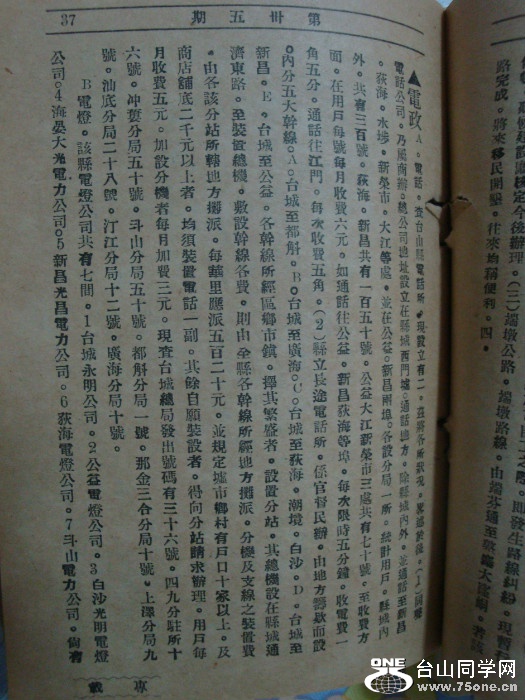 第卅五期
37
▲電政
A、電話。查台山縣電話所。現設立有二。茲將各所狀況。
電話公司。乃屬商辦。總公司地址設立在縣城西門墟。通話地方。除縣城內外。並通話至新昌
。荻海。水埗。新榮市。大江等處。並在公益。新昌兩埠。各設分局一所。統計用戶。縣城內
外。共有三百號。荻海。新昌共有一百五十號。公益大江新榮市三處共有七十號。至收費方
面。在用戶每號每月收費六元。如通話往公益。新昌荻海等埠。每次限時五分鐘。收電費一
角五分。通話往江門。每次收費五角。(2)縣立長途電話所。係官督民辦。由地方籌歀而設
。內分五大幹線。A。台城至都斛。B。台城至廣海。C。台城至荻海。潮境。白沙。D。台城至
新昌。E。台城至公益。各幹線所經區鄉市鎮。擇其繁盛者。設置分站。其總機設在縣城通
濟東路。至裝置總機。敷設幹線各費。則由全縣各幹線所經地方攤派。分機及支線之裝置費
。由各該分站所轄地方攤派。每華里應派五百二十元。並規定墟市鄉村有戶口十家以上。及
商店舖底二千元以上者。均須裝置電話一副。其餘自願裝設者。得向分站請求辦理。用戶每
月收費五元。加設分機者每月加費三元。現查台城總局發出號碼有三十六號。四九分駐所十
六號。冲蔞分局五十號。斗山分局五十號。都斛分局一號。那金三合分局十號。上澤分局九
號。汕底分局二十八號。汀江分局十二號。廣海分局十號。
B電燈。該縣電燈公司共有七間。1台城永明公司。2公益電燈公司。3白沙光明電燈
公司。4海晏大光電力公司。5新昌光昌電力公司。6荻海電燈公司。7斗山電力公司。尚有
專載
ONE
台山同学网
www.75one.cn